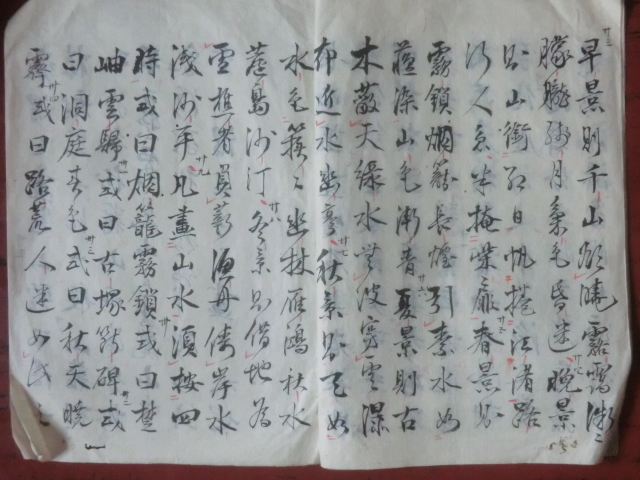 早景則千山欲曉霧靄微〻
朦朧殘月氣色昏迷晚景
則山銜紅日帆捲江渚路
行人急半掩柴扉春景則
霧鎖烟籠長煙引素水如
藍染山色漸青夏景則古
木蔽天綠水無波穿雲瀑
布近水幽亭秋景則天如
水色簇〻幽林雁鴻秋水
蘆島沙汀冬景則借地為
雪樵者負薪漁舟倚岸水
淺沙平凡畫山水須按四
時或曰烟籠霧鎖或曰楚
岫雲歸或曰古塚斷碑或
曰洞庭春色或曰秋天曉
霽或曰路荒人迷如此之